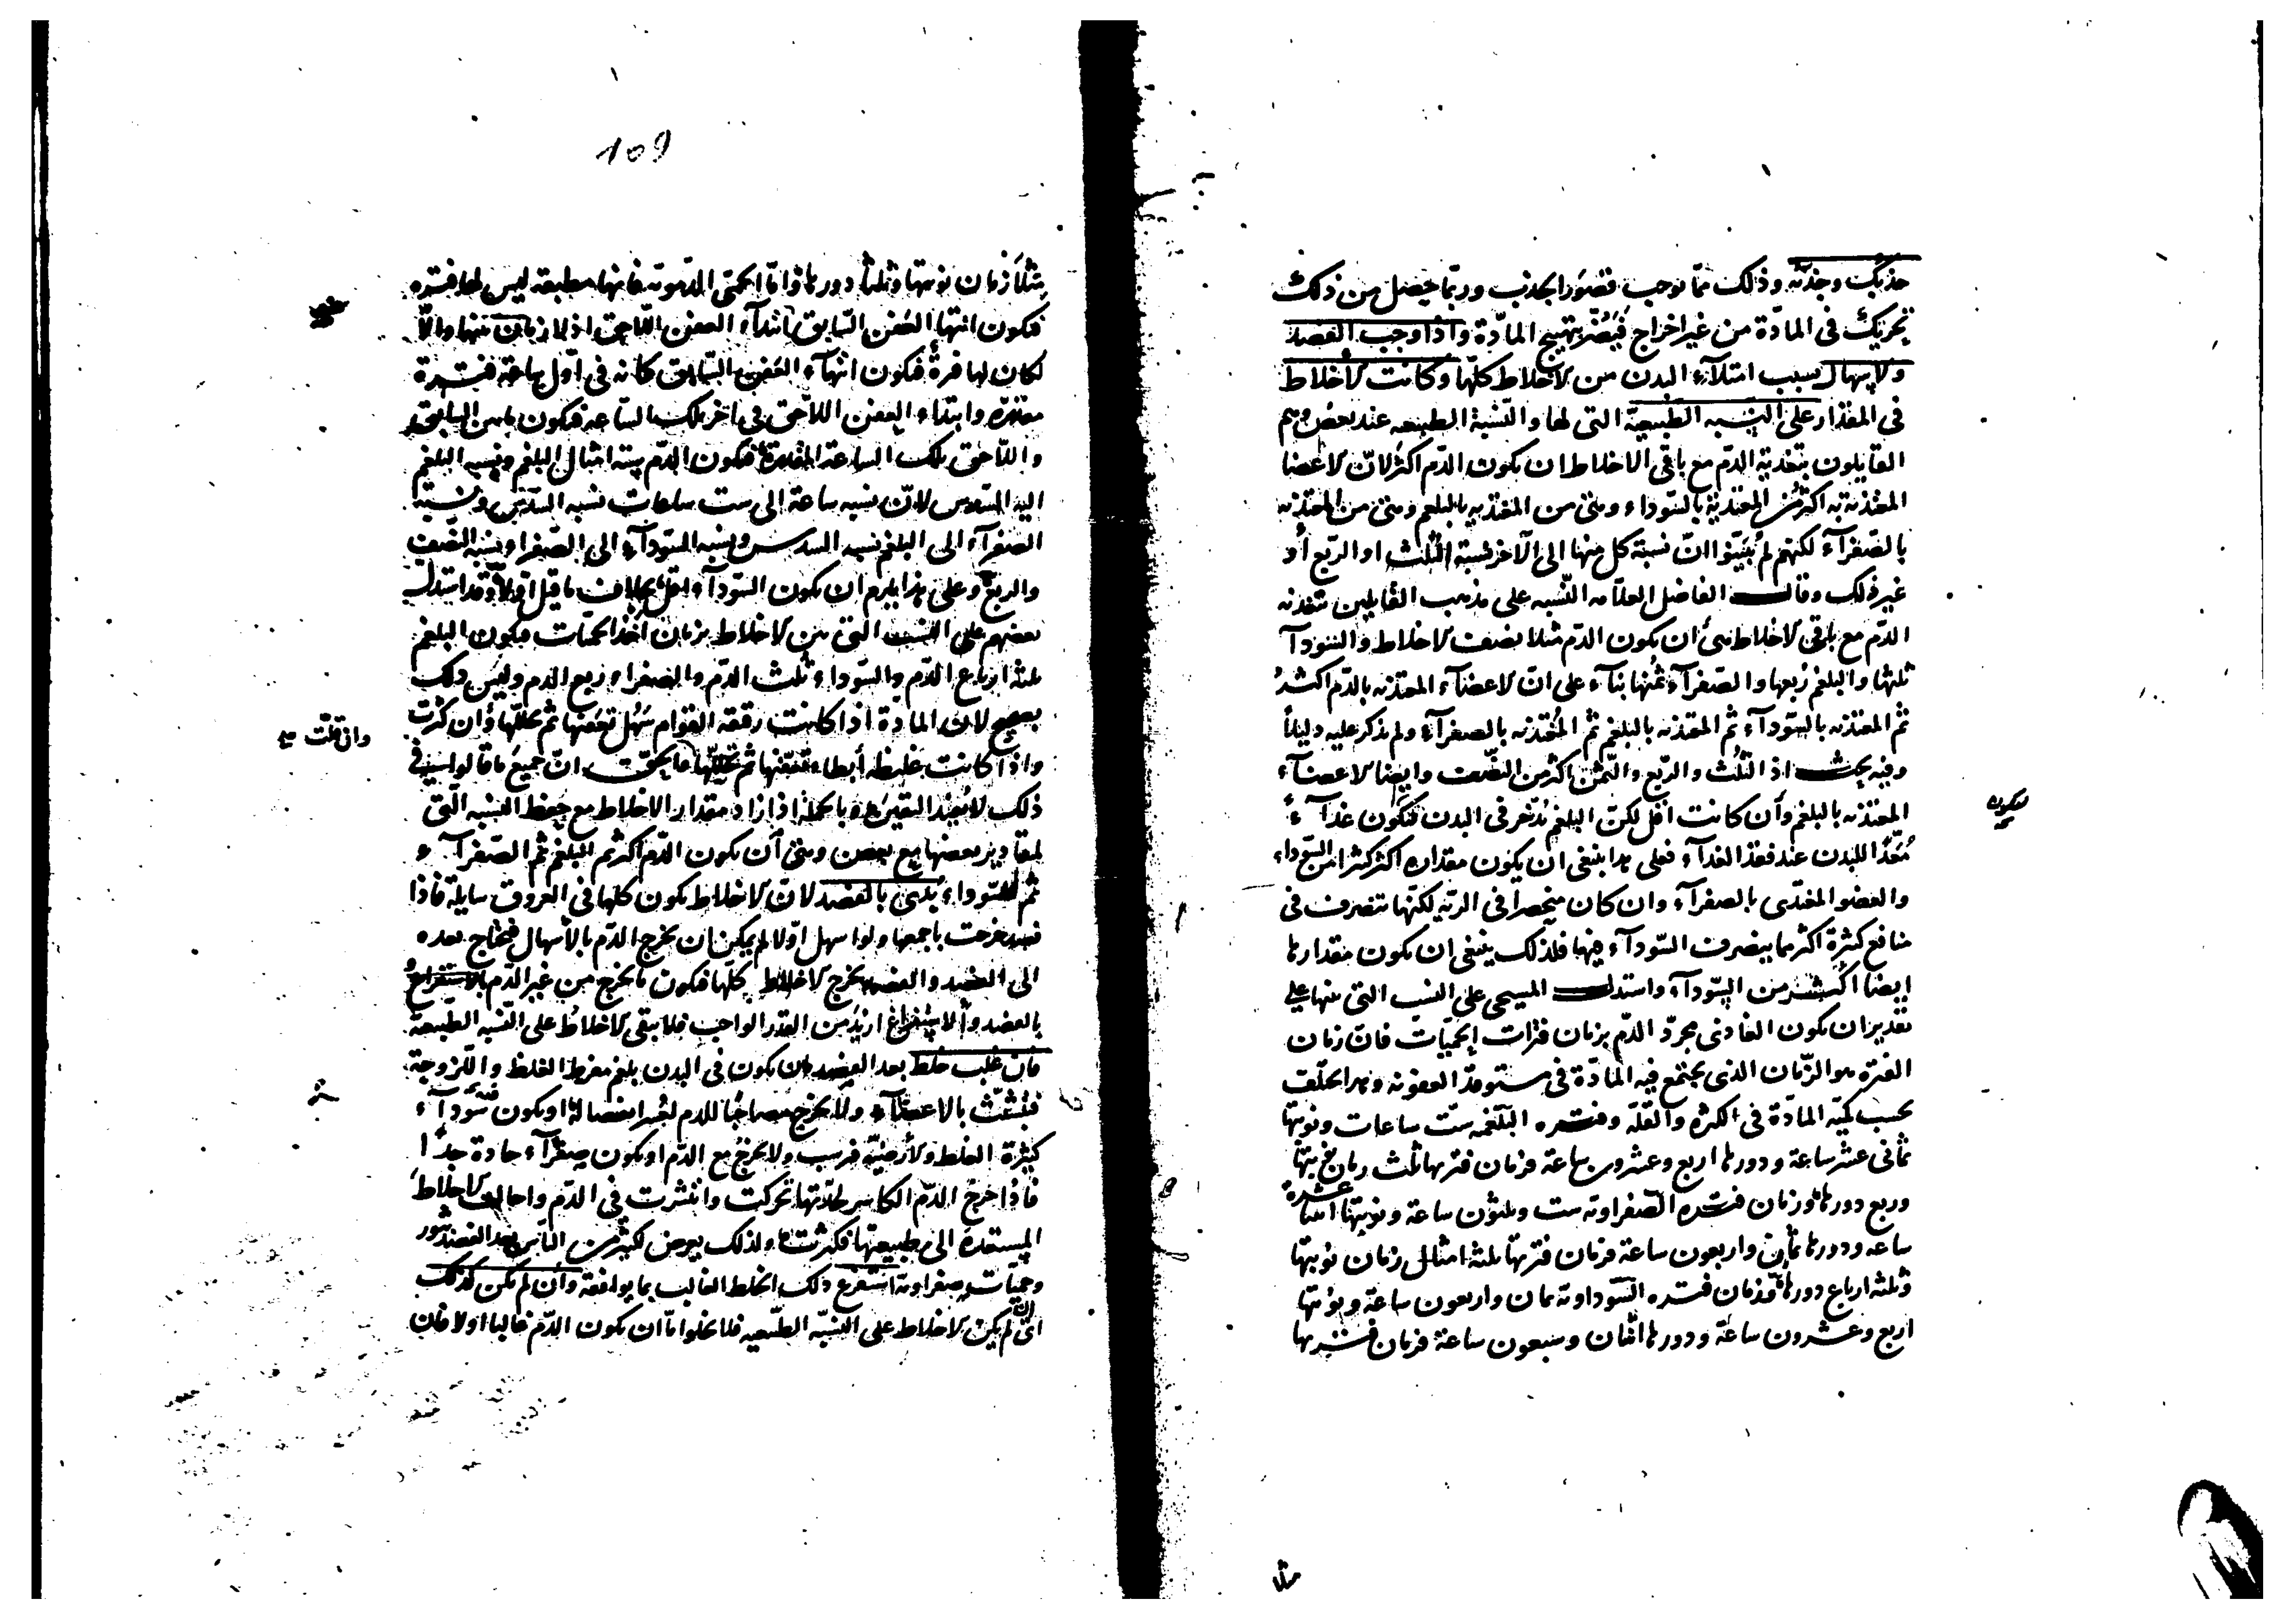 جذبك وجذبه وذلك مما يوجب قصور الجذب وربما حصل من ذلك
تحريك فى المادة من غير اخراج فيضر بتهييج المادة واذا وجب الفصد
ولاسهال بسبب امتلاء البدن من لاخلاط كلها وكانت لاخلاط
فى المقدار على النسبه الطبيعية التى لها والنسبة الطبيعه عند بعض وهم
القايلون بتغذية الدم مع باقى الاخلاط ان يكون الدم اكثر لان لاعضا
المغتذيه به اكثر من المغتذية بالسوداء وهى من المغتذيه بالبلغم وهى من المغتذيه
بالصفراء لكنهم لم يبينوا ان نسبة كل منها الى الاخر نسبة الثلث او الربع أو
غير ذلك وقال الفاضل العلامه النسبه على مذهب القايلين بتغذيه
الدم مع باقى لاخلاط هى أن يكون الدم مثلا نصف لاخلاط والسودآ
ثلثها والبلغم ربعها والصفرآء ثمنها بنآء على ان لاعضآء المغتذيه بالدم اكثر
ثم المغتذيه بالسودآء ثم المغتذيه بالبلغم ثم المغتذيه بالصفرآء ولم يذكر عليه دليلاً
وفيه بحث اذ الثلث والربع والثمن اكثر من النصف وايضا لاعضآء
المغتذيه بالبلغم وأن كانت اقل لكن البلغم يدخر فى البدن فيكون غذآء
معدا للبدن عند فقد الغدآء فعلى هذا ينبغى ان يكون مقداره اكثر كثيرا من السوداء
والعضو المغتذى بالصفرآء وان كان منحصرا فى الريه لكنها تتصرف فى
منافع كثيرة اكثر مما يتصرف السودآء فيها فلذلك ينبغى ان يكون مقدارها
ايضا اكثر من السودآء واستدل المسيحى على النسب التى بينها على
تقدير ان يكون الغاذى مجرد الدم بزمان فترات الحميات فان زمان
الفتره هو الزمان الذى يجتمع فيه الماده فى مستوقد العفونه وهذا يختلف
بحسب كمية المادة فى الكثره والقلة وفتره البلغميه ست ساعات ونوبتها
ثمانى عشر ساعة ودورها اربع وعشرون ساعة فزمان فترتها ثلث زمان نوبتها
وربع دورها وزمان فتره الصفراويه ست وثلثون ساعة ونوبتها اثنتا عشرة
ساعه ودورها ثمان واربعون ساعة فزمان فترتها ثلثه امثال زمان نوبتها
وثلثه ارباع دورها وزمان فتره السوداويه ثمان واربعون ساعة ونوبتها
اربع وعشرون ساعة ودورها اثنان وسبعون ساعة فزمان فترتها
مثلا
109
مثلا زمان نوبتها وثلثا دورها واما الحمى الدمويه فانها مطبقه ليس لها فتره
فيكون انتهآ العفن السابق ابتدآء العفن اللاحق اذ لا زمان بينهما والا
لكان لها فترة فيكون انتهآء العفن السابق كانه فى اول ساعة فترة
مقدرة وابتداء العفن اللاحق فى اخر تلك الساعه فيكون ما بين السابق
واللاحق تلك الساعة المقدرة فيكون الدم سته امثال البلغم ونسبه البلغم
اليه السدس لان نسبه ساعة الى ست ساعات نسبه السدس ونسبة
الصفرآء الى البلغم نسبه السدس ونسبه السودآء الى الصفراء نسبه النصف
والربع وعلى هذا يلزم ان يكون السودآء اقل بخلاف ما قيل اولا وقد استدل
بعضهم على النسب التى بين لاخلاط بزمان اخذ الحميات فيكون البلغم
ثلثه ارباع الدم والسوداء ثلث الدم والصفراء ربع الدم وليس ذلك
بصحيح لان المادة اذا كانت رقيقه القوام سهل تعفنها ثم تحللها وان كثرت
وان قلت
واذا كانت غليظه أبطاء تعفنها ثم تحللها والحق ان جميع ما قالوا فى
ذلك لا يفيد اليقين وبالجملة اذا زاد مقدار الاخلاط مع حفظ النسبه التى
لمقادير بعضها مع بعض وهى أن يكون الدم اكثر ثم البلغم ثم الصفرآء
ثم السوداء بدى بالفصد لان لاخلاط يكون كلها فى العروق سايلة فاذا
فصد خرجت باجمعها ولو اسهل اولا لم يمكن ان يخرج الدم بالاسهال فيحتاج بعده
الى الفصد والفصد يخرج لاخلاط كلها فيكون ما يخرج من غير الدم بالاستفراغ
بالفصد والاستفراغ ازيد من القدر الواجب فلا يبقى لاخلاط على النسبه الطبيعة
فان غلب خلط بعد الفصد بان يكون فى البدن بلغم مفرط الغلظ واللزوجة
فيتشبث بالاعضآء ولا يخرج مصاحبا للدم لعسر انفصاله او يكون فيه سودآء
كثيرة الغلظ ولأرضيه فرسب ولا يخرج مع الدم او يكون صفرآء حادة جدا
فاذا خرج الدم الكاسر لحدتها تحركت وانتشرت فى الدم واحالت لاخلاط
المستعده الى طبيعتها فكثرت ولذلك يعرض لكثير من الناس بعد الفصد بثور
وحميات صفراويه استفرغ ذلك الخلط الغالب بما يوافقه وأن لم يكن كذلك
اى لم يكن لاخلاط على النسبه الطبيعيه فلا يخلوا اما ان يكون الدم غالبا اولا فان